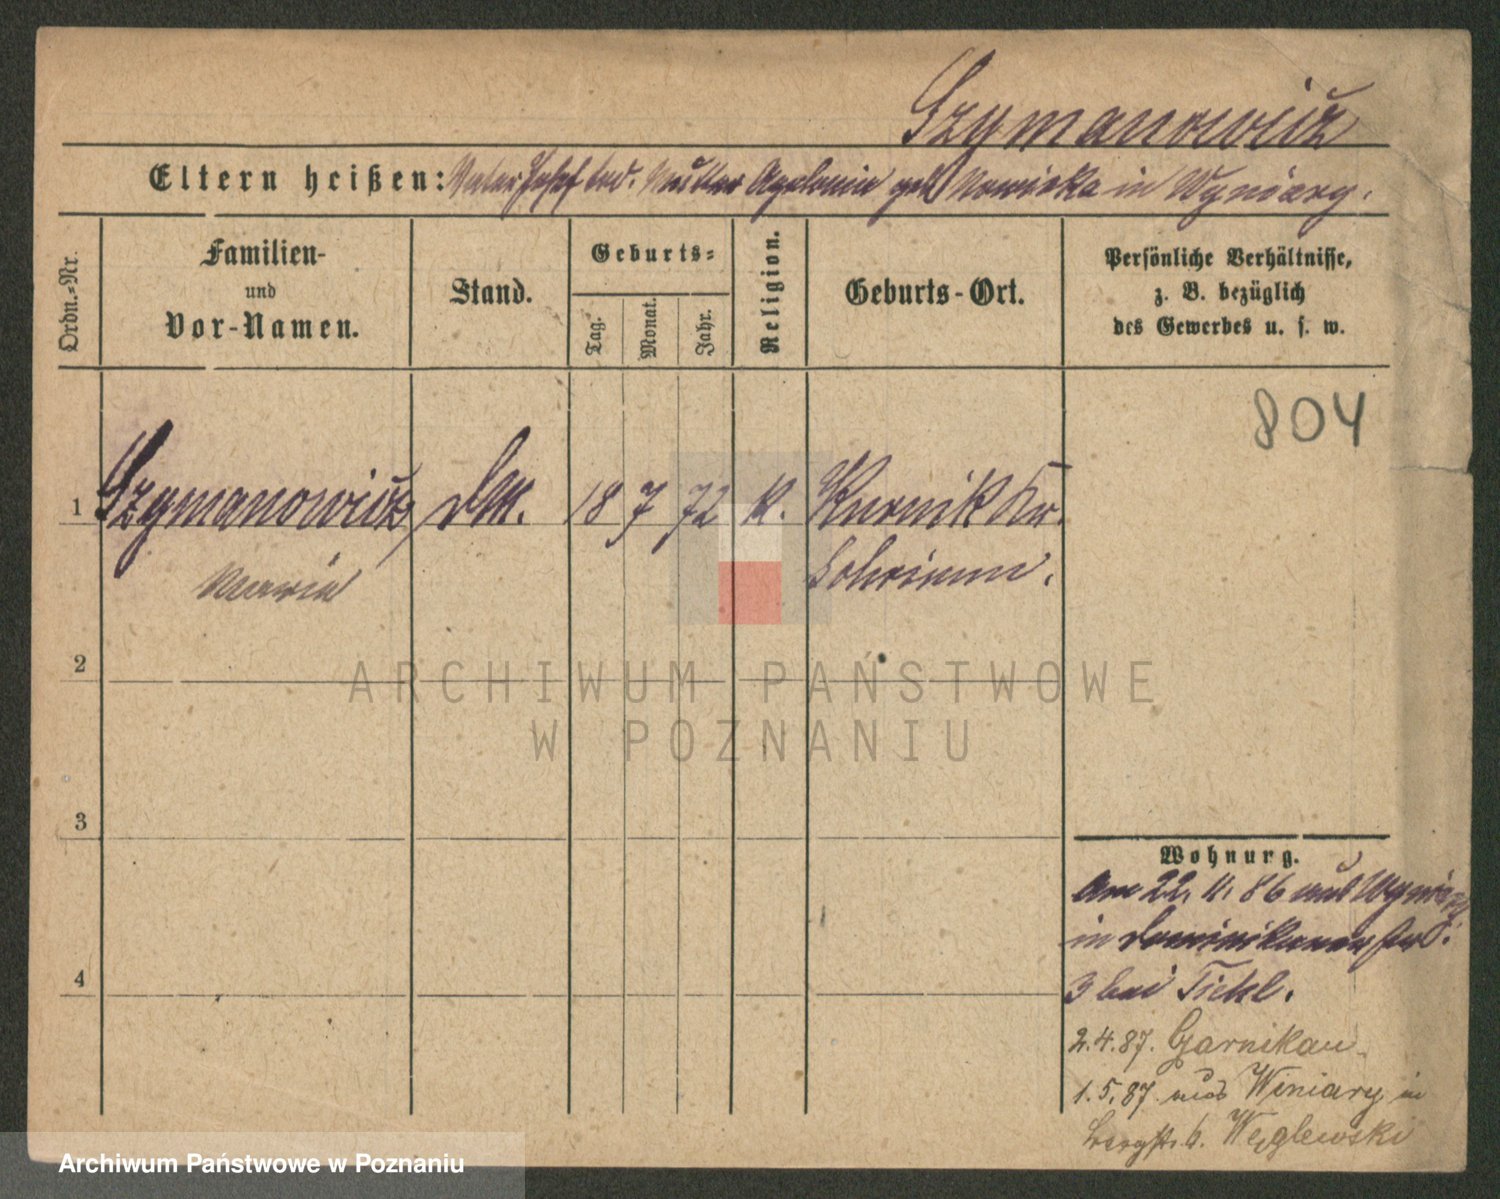 Szymanowicz
Eltern heißen: Vater Josef tod. Mutter Apolonia geb. Nowicka in Wyniary.
Ordn.-Nr.
Familien-
und
Vor-Namen.
Stand.
Geburts-
Tag.
Monat.
Jahr.
Religion.
Geburts-Ort.
Persönliche Verhältnisse,
z. B. bezüglich
des Gewerbes u. s. w.
804
1 Szymanowicz, 18 7 72 k. Kurnik Kr.
Maria Schrimm.
2
3
4
Wohnung.
Am 22. 11. 86 aus Wyniary
in Dominikaner str.
3 bei Tickl.
2.4.87. Czarnikau.
1.5.87 aus Winiary in
Bergstr. 6. Węglewski
ARCHIWUM PAŃSTWOWE
W POZNANIU
Archiwum Państwowe w Poznaniu